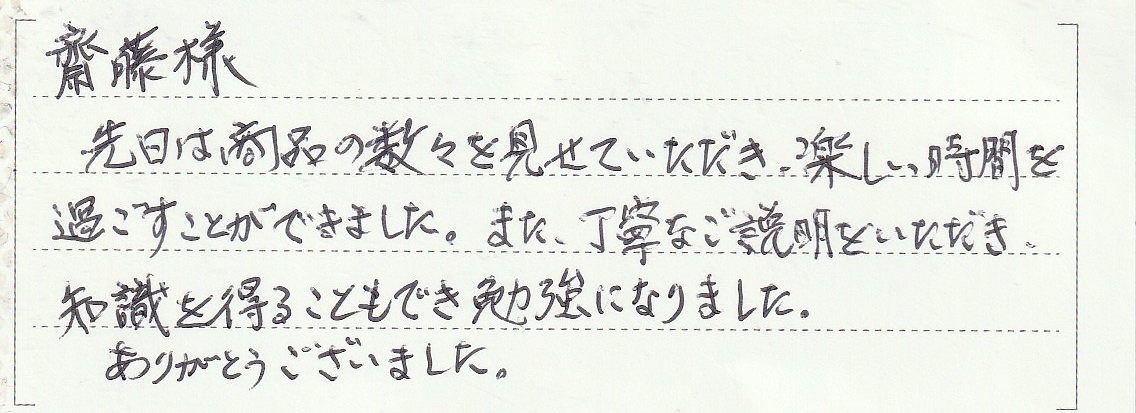 齋藤様
先日は商品の数々を見せていただき、楽しい時間を
過ごすことができました。また、丁寧なご説明をいただき、
知識を得ることもでき勉強になりました。
ありがとうございました。